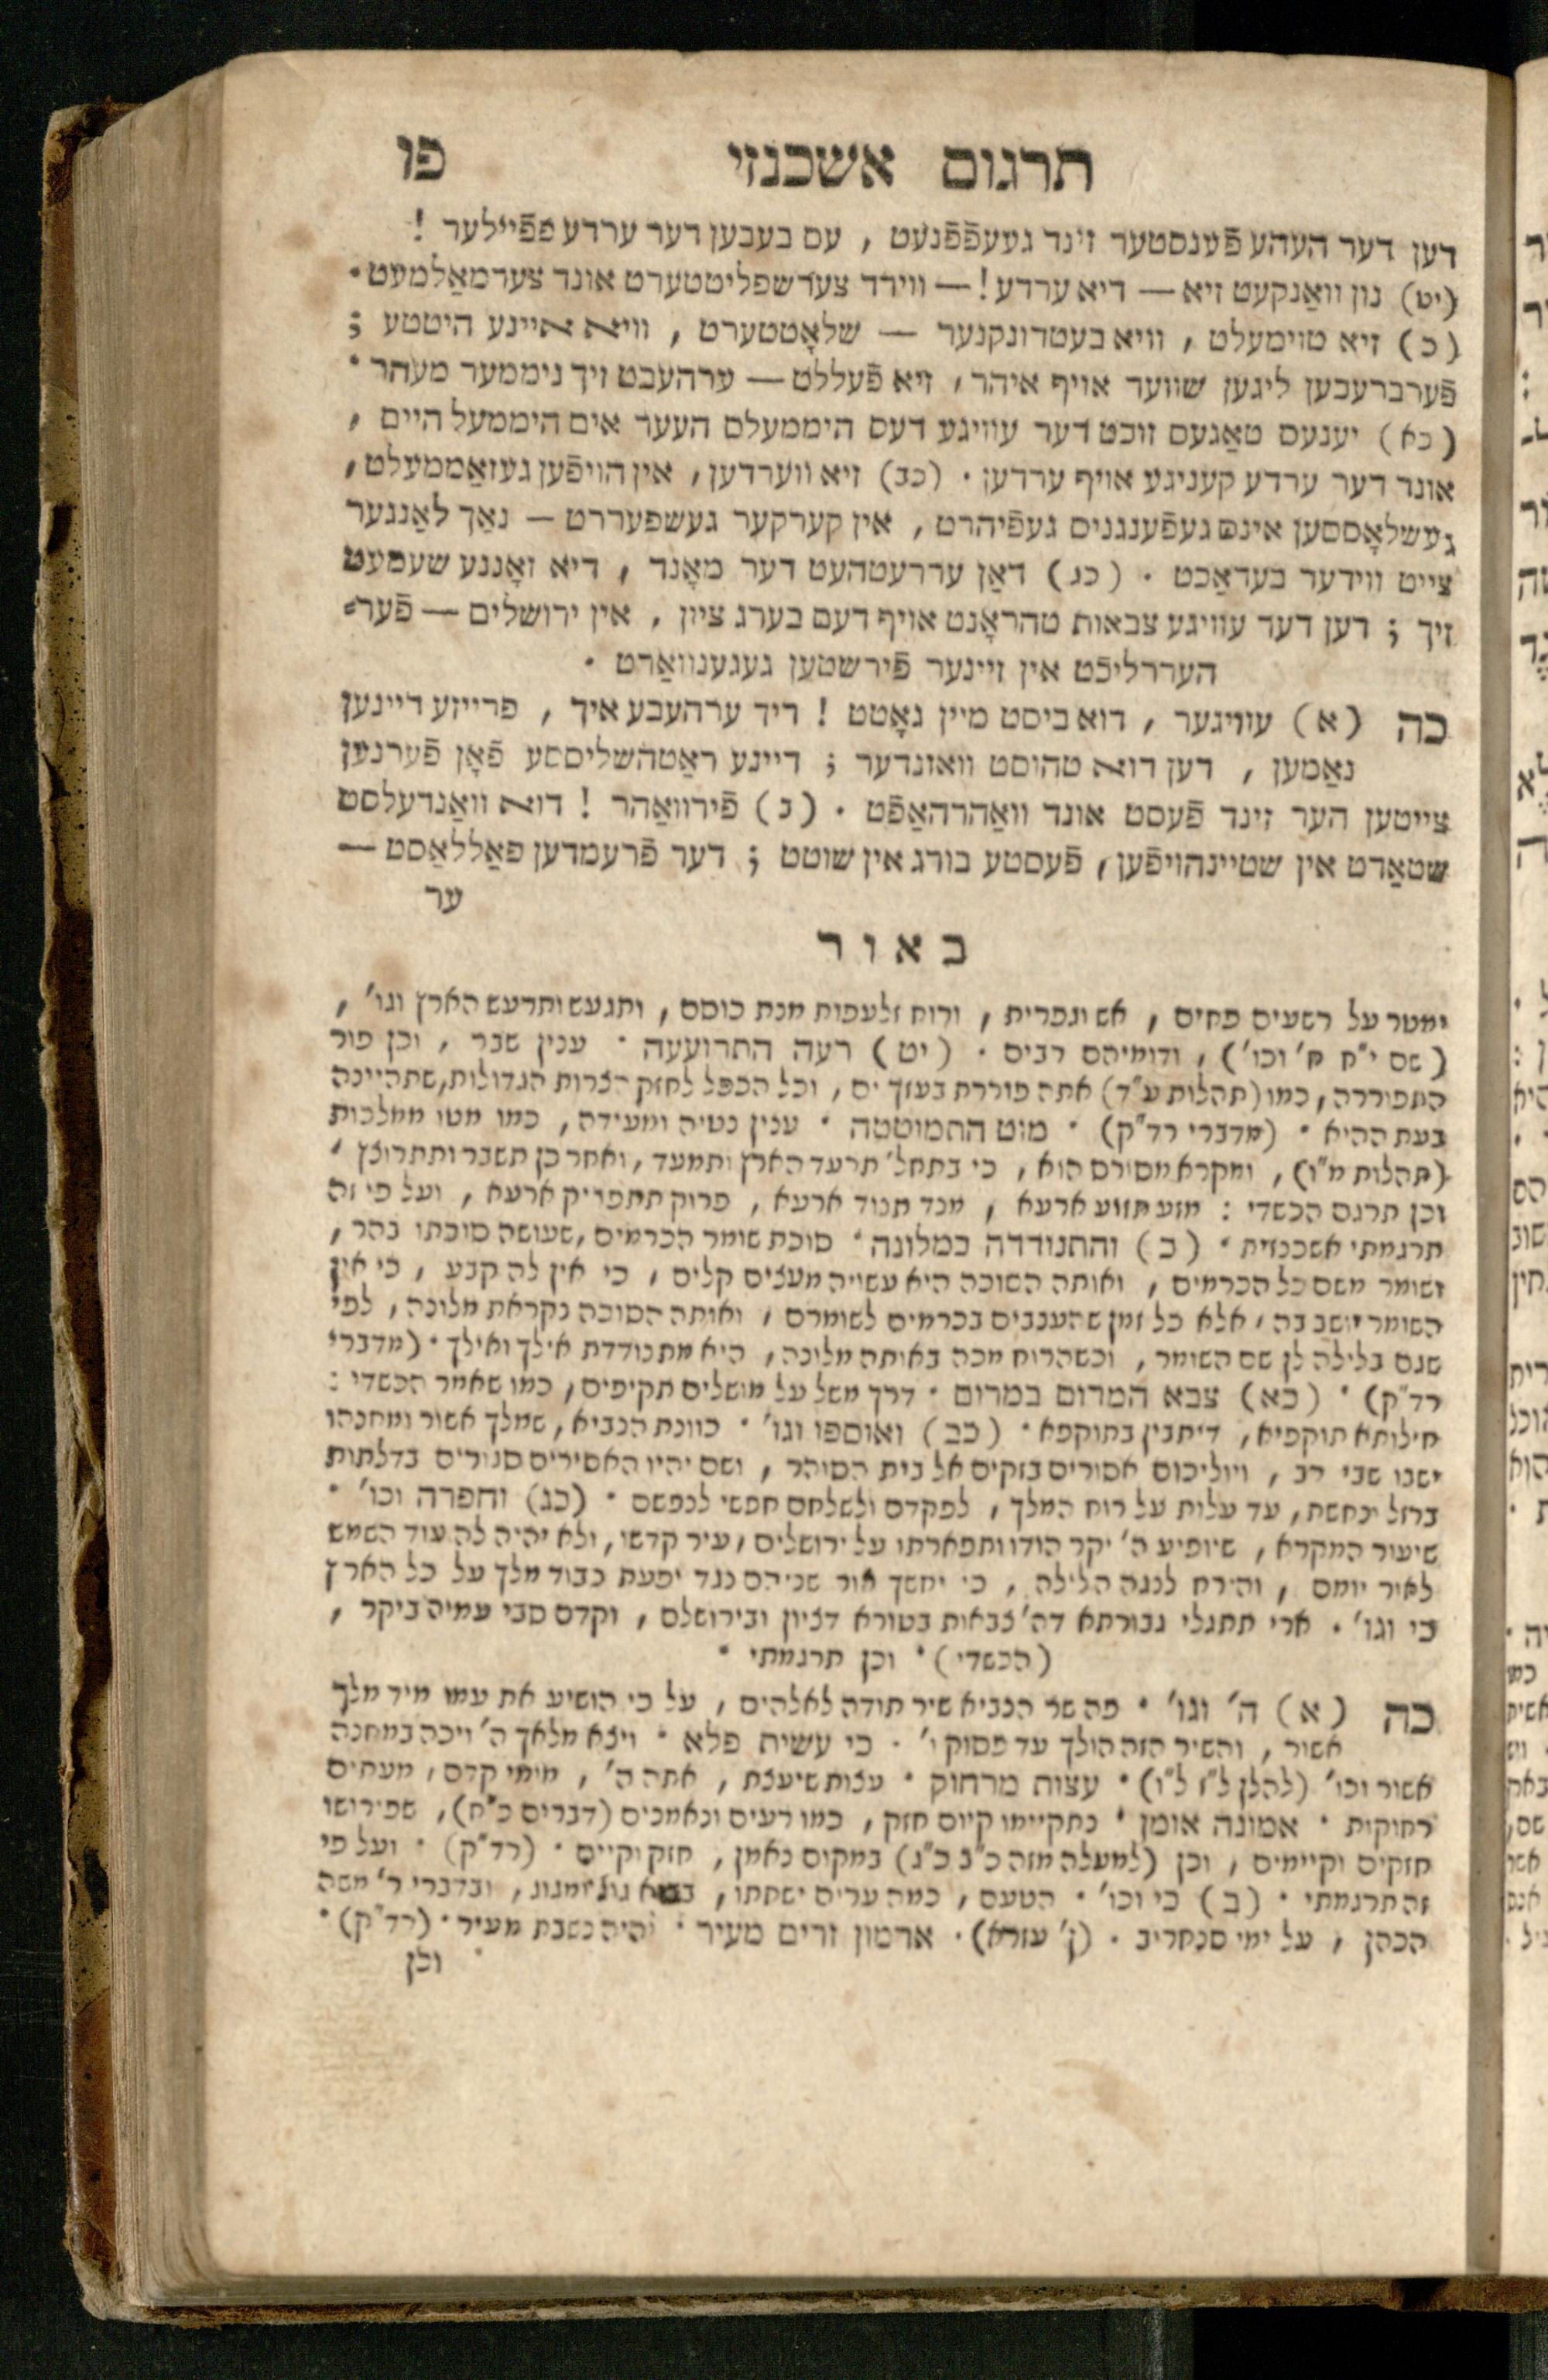 תרגום אשכנזי פו
דען דער העהע פֿענסטער זינד געעפֿפֿנעט , עס בעבען דער ערדע פפֿיילער !
(יט) נון וואַנקעט זיא — דיא ערדע ! — ווירד צערשפליטטערט אונד צערמאַלמעט .
(כ) זיא טוימעלט , וויא בעטרונקנער — שלאָטטערט , וויא איינע היטטע ;
פֿערברעכען ליגען שווער אויף איהר , זיא פֿעללט — ערהעבט זיך ניממער מעהר .
(כא) יענעס טאַגעס זוכט דער עוויגע דעס היממעלס העער אים היממעל היים ,
אונד דער ערדע קעניגע אויף ערדען . (כב) זיא ווערדען , אין הויפֿען געזאַממעלט ,
געשלאָססען אינס געפֿענגניס געפֿיהרט , אין קערקער געשפעררט — נאַך לאַנגער
צייט ווידער בעדאַכט . (כג) דאַן עררעטהעט דער מאָנד , דיא זאָננע שעמעט
זיך ; דען דער עוויגע צבאות טהראָנט אויף דעם בערג ציון , אין ירושלים — פֿער=
העררליכֿט אין זיינער פֿירשטען געגענוואַרט .
כה (א) עוויגער , דוא ביסט מיין גאָטט ! דיך ערהעבע איך , פרייזע דיינען
נאַמען , דען דוא טהוסט וואונדער ; דיינע ראַטהשליססע פֿאָן פֿערנען
צייטען הער זינד פֿעסט אונד וואַהרהאַפֿט . (ב) פֿירוואַהר ! דוא וואַנדעלסט
שטאַדט אין שטיינהויפֿען , פֿעסטע בורג אין שוטט ; דער פֿרעמדען פאַללאַסט —
ער
באור
ימטר על רשעים פחים , אש וגפרית , ורוח זלעפות מנת כוסם , ותגעש ותרעש הארץ וגו' ,
(שם י"ח ח' וכו') , ודומיהם רבים . (יט) רעה התרועעה . ענין שבר , וכן פור
התפוררה , כמו (תהלות ע"ד) אתה פוררת בעזך ים , וכל הכפל לחזק הצרות הגדולות, שתהיינה
בעת ההיא . (מדברי רד"ק) . מוט התמוטטה . ענין נטיה ומעידה , כמו מטו ממלכות
(תהלות מ"ו) , ומקרא מסורס הוא , כי בתחל' תרעד הארץ ותמעד , ואחר כן תשבר ותתרוצץ ,
וכן תרגם הכשדי : מזע תזוע ארעא , מנד תנוד ארעא , פרוק תתפריק ארעא , ועל פי זה
תרגמתי אשכנזית . (כ) והתנודדה כמלונה . סוכת שומר הכרמים , שעושה סוכתו בהר ,
ושומר משם כל הכרמים , ואותה הסוכה היא עשויה מעצים קלים , כי אין לה קבע , כי אין
השומר יושב בה , אלא כל זמן שהענבים בכרמים לשומרם , ואותה הסוכה נקראת מלונה , לפי
שגם בלילה לן שם השומר , וכשהרוח מכה באותה מלונה , היא מתנודדת אילך ואילך . (מדברי
רד"ק) . (כא) צבא המרום במרום . דרך משל על מושלים תקיפים , כמו שאמר הכשדי :
חילותא תוקפיא , דיתבין בתוקפא . (כב) ואוספו וגו' . כוונת הנביא , שמלך אשור ומחנהו
ישבו שבי רב , ויוליכום אסורים בזקים אל בית הסוהר , ושם יהיו האסירים סגורים בדלתות
ברזל ונחשת , עד עלות על רוח המלך , לפקדם ולשלחם חפשי לנפשם . (כג) וחפרה וכו' .
שיעור המקרא , שיופיע ה' יקר הודו ותפארתו על ירושלים , עיר קדשו , ולא יהיה לה עוד השמש
לאור יומם , והירח לנגה הלילה , כי יחשך אור שניהם נגד יפעת כבוד מלך על כל הארץ
כי וגו' . ארי תתגלי גבורתא דה' צבאות בטורא דציון ובירושלם , וקדם סבי עמיה ביקר ,
(הכשדי) . וכן תרגמתי .
כה (א) ה' וגו' . פה שר הנביא שיר תודה לאלהים , על כי הושיע את עמו מיד מלך
אשור , והשיר הזה הולך עד פסוק ו' . כי עשית פלא . ויצא מלאך ה' ויכה במחנה
אשור וכו' (להלן ל"ז ל"ו) . עצות מרחוק . עצות שיעצת , אתה ה' , מימי קדם , מעתים
רחוקות . אמונה אומן . נתקיימו קיום חזק , כמו רעים ונאמנים (דברים כ"ח) , שפירושו
חזקים וקיימים , וכן (למעלה מזה כ"ב כ"ג) במקום נאמן , חזק וקיים . (רד"ק) . ועל פי
זה תרגמתי . (ב) כי וכו' . הטעם , כמה ערים ישחתו , בבא גוג ומגוג , ובדברי ר' משה
הכהן , על ימי סנחריב . (ן' עזרא) . ארמון זרים מעיר . יהיה נשבת מעיר . (רד"ק) .
וכן